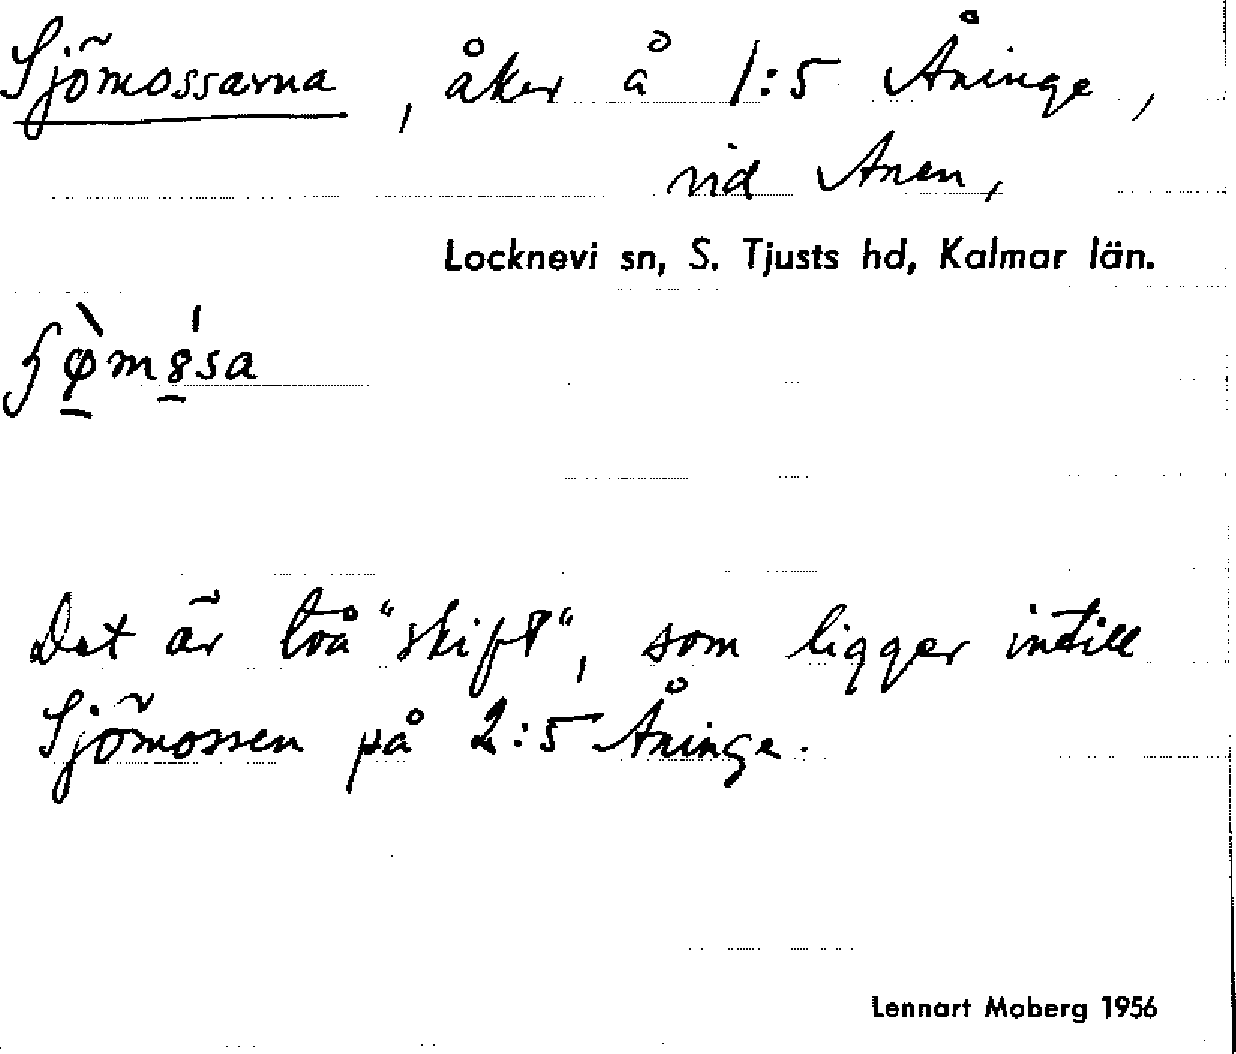 Sjömossarna, åker å 1:5 Åninge,
vid Anen,
Locknevi sn, S. Tjusts hd, Kalmar län.
Det är två "skift", som ligger intill
Sjömossen på 2:5 Åninge.
Lennart Moberg 1956